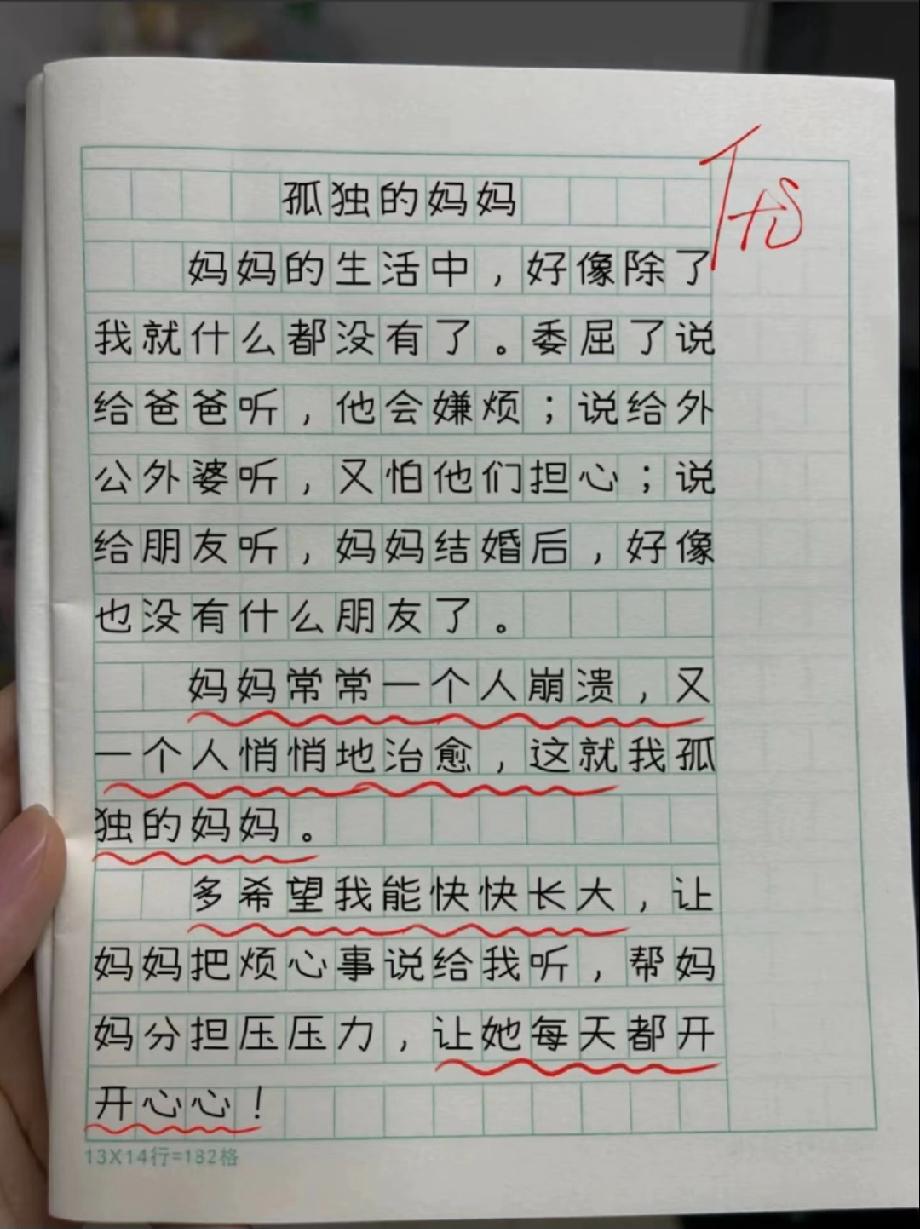 孤独的妈妈
优
妈妈的生活中，好像除了
我就什么都没有了。委屈了说
给爸爸听，他会嫌烦；说给外
公外婆听，又怕他们担心；说
给朋友听，妈妈结婚后，好像
也没有什么朋友了。
妈妈常常一个人崩溃，又
一个人悄悄地治愈，这就我孤
独的妈妈。
多希望我能快快长大，让
妈妈把烦心事说给我听，帮妈
妈分担压压力，让她每天都开
开心心！
13X14行=182格